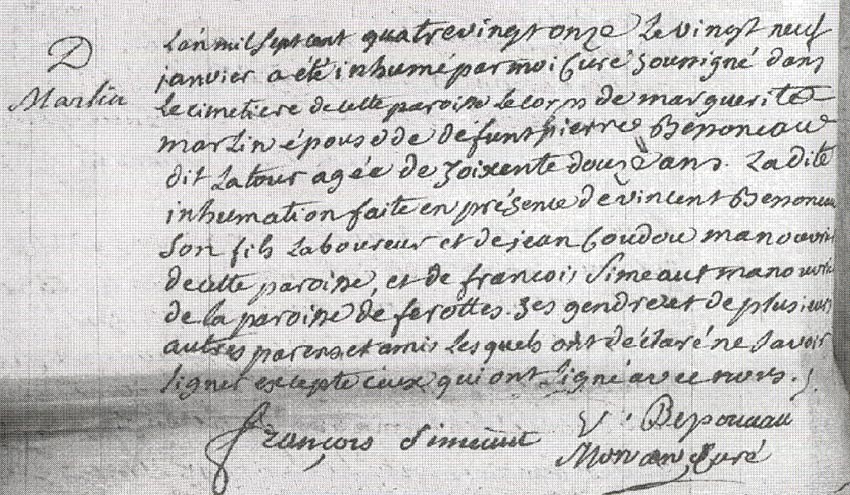 D
Martin
L'an mil sept cent quatre vingt onze Le vingt neuf
janvier a été inhumé par moi Curé Soussigné dans
Le cimetiere de cette paroisse Le corps de marguerite
martin épouse de défunt pierre Bessoneau
dit Latour agée de Soixente douze ans. La dite
inhumation faite en présence de vincent Bessoneau
Son fils Laboureur et de jean Coudou manoeuvrie
de cette paroisse, et de francois Simeaut manouvrie
de la paroisse de ferottes. Ses gendres et de plusieurs
autres parens et amis Lesquels ont déclaré ne Savoir
Signer excepte ceux qui ont Signé avec nous.
françois Simeaut V. Bessoneau
Curé